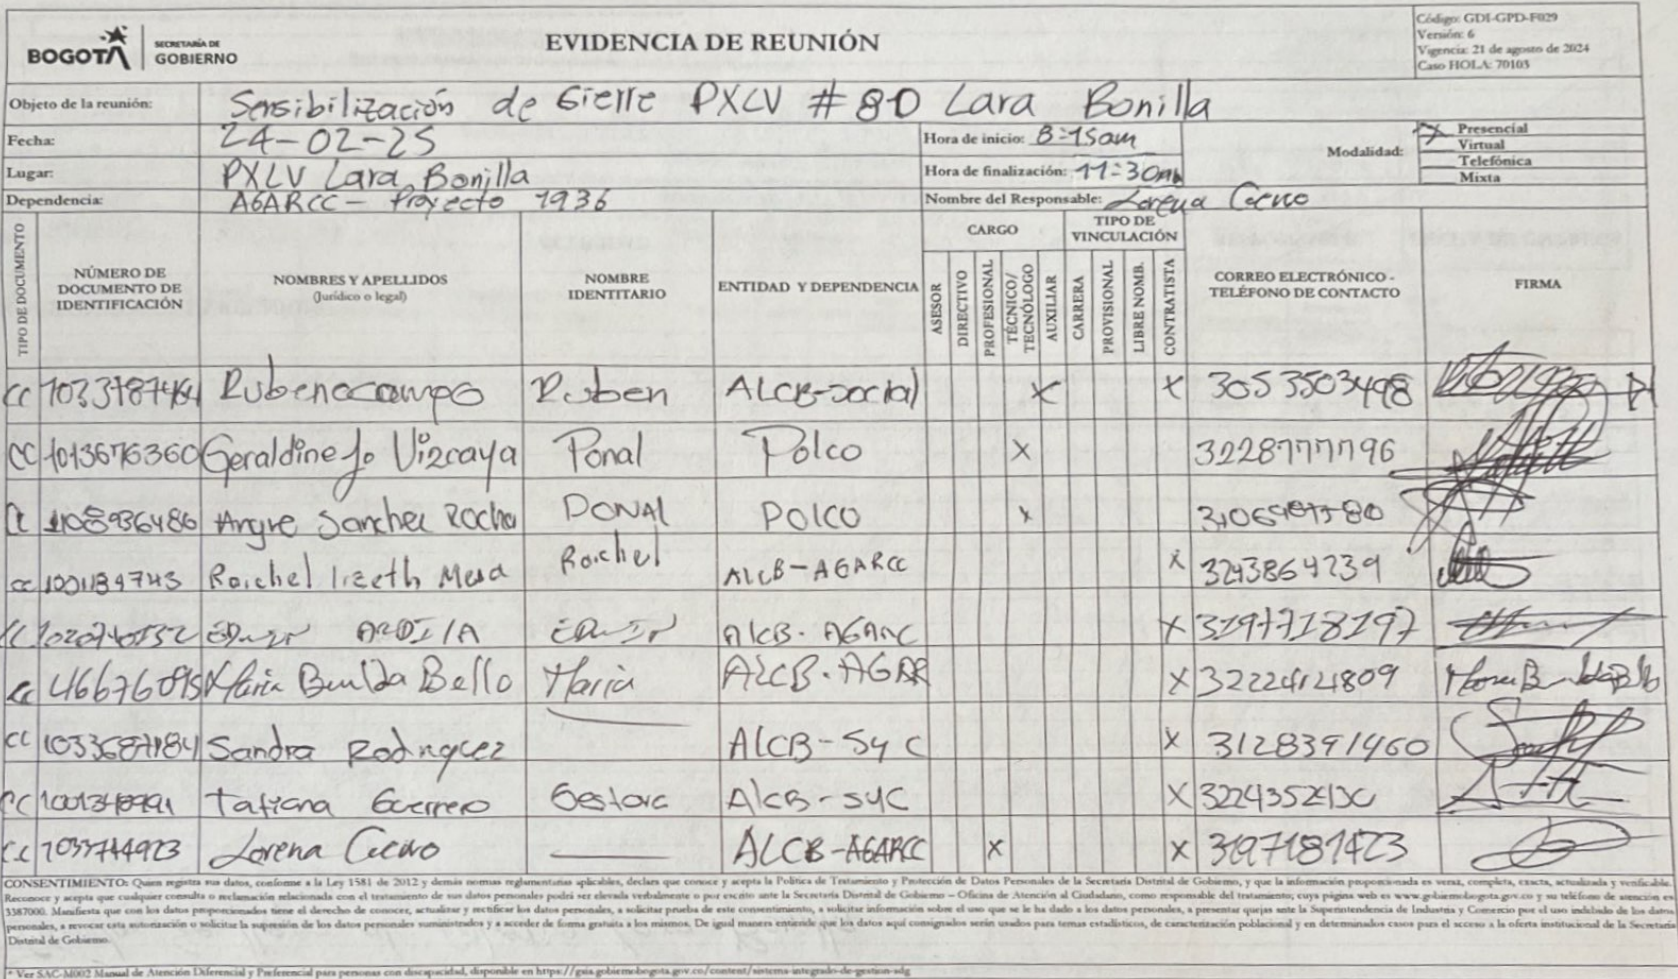 BOGOTÁ
SECRETARÍA DE
GOBIERNO
EVIDENCIA DE REUNIÓN
Código: GDI-GPD-F029
Versión: 6
Vigencia: 21 de agosto de 2024
Caso HOLA: 70103
Objeto de la reunión: Sensibilización de Cierre PXLV # 80 Lara Bonilla
Fecha: 24-02-25
Hora de inicio: 8:15am
Modalidad:
X Presencial
Virtual
Telefónica
Mixta
Lugar: PXLV Lara Bonilla
Hora de finalización: 11:30am
Dependencia: AGARCC - Proyecto 1936
Nombre del Responsable: Lorena
TIPO DE DOCUMENTO
NÚMERO DE DOCUMENTO DE IDENTIFICACIÓN
NOMBRES Y APELLIDOS (Jurídico o legal)
NOMBRE IDENTITARIO
ENTIDAD Y DEPENDENCIA
CARGO
ASESOR
DIRECTIVO
PROFESIONAL
TÉCNICO/ TECNÓLOGO
AUXILIAR
TIPO DE VINCULACIÓN
CARRERA
PROVISIONAL
LIBRE NOMB.
CONTRATISTA
CORREO ELECTRÓNICO - TELÉFONO DE CONTACTO
FIRMA
CC Ruben ocampo Ruben ALCB-Social X X 3053503498
CC 1013676360 Geraldine Vizcaya Ponal Polco X
CC 1108936486 Angie Sanchez Rocha PONAL POLCO X
CC Raichel lizeth Mesa Raichel ALCB-AGARCC X 3243864239
CC ARDILA ALCB. X 3197718197
CC Maria Bello Maria ALCB.AGAR X
CC Sandra Rodriguez ALCB-SyC X 3128391460
CC Tatiana Guerrero Gestora ALCB-SYC X
CC Lorena ALCB-AGARCC X X 3197181423
CONSENTIMIENTO: Quien registra sus datos, conforme a la Ley 1581 de 2012 y demás normas reglamentarias aplicables, declara que conoce y acepta la Política de Tratamiento y Protección de Datos Personales de la Secretaría Distrital de Gobierno, y que la información proporcionada es veraz, completa, exacta, actualizada y verificable.
Reconoce y acepta que cualquier consulta o reclamación relacionada con el tratamiento de sus datos personales podrá ser elevada verbalmente o por escrito ante la Secretaría Distrital de Gobierno – Oficina de Atención al Ciudadano, como responsable del tratamiento, cuya página web es www.gobiernobogota.gov.co y su teléfono de atención es
3387000. Manifiesta que con los datos proporcionados tiene el derecho de conocer, actualizar y rectificar los datos personales, a solicitar prueba de este consentimiento, a solicitar información sobre el uso que se le ha dado a los datos personales, a presentar quejas ante la Superintendencia de Industria y Comercio por el uso indebido de los datos
personales, a revocar esta autorización o solicitar la supresión de los datos personales suministrados y a acceder de forma gratuita a los mismos. De igual manera entiende que los datos aquí consignados serán usados para temas estadísticos, de caracterización poblacional y en determinados casos para el acceso a la oferta institucional de la Secretaría
Distrital de Gobierno.
* Ver SAC-M002 Manual de Atención Diferencial y Preferencial para personas con discapacidad, disponible en https://gaia.gobiernobogota.gov.co/content/sistema-integrado-de-gestion-sdg